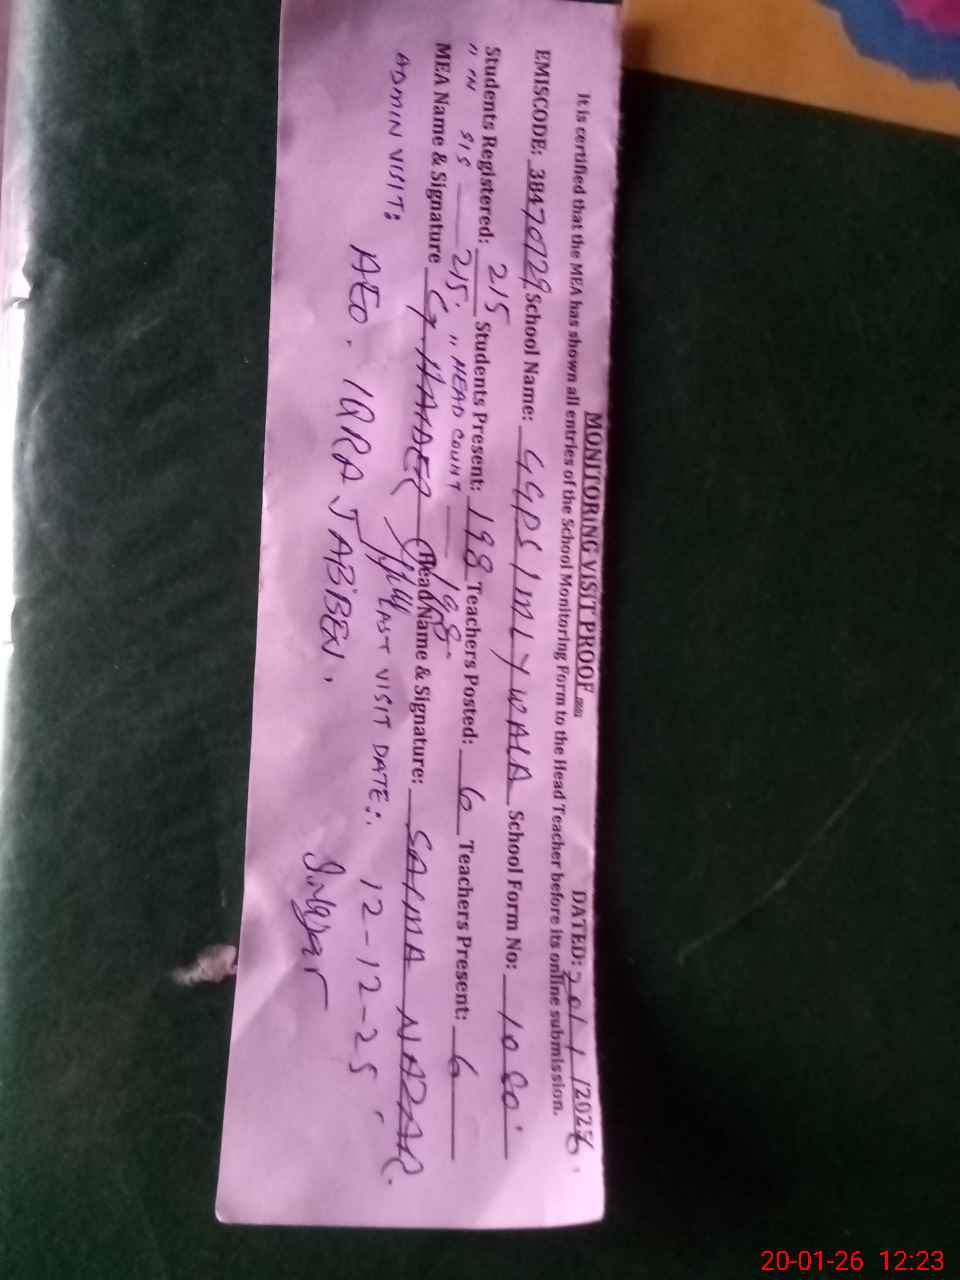 MONITORING VISIT PROOF DATED: 20/1/2026.
It is certified that the MEA has shown all entries of the School Monitoring Form to the Head Teacher before its online submission.
EMISCODE: 38470129 School Name: GGPS IMLYWALA School Form No: 1080
Students Registered: 215 Students Present: 198 Teachers Posted: 6 Teachers Present: 6
" IN SIS 215. " HEAD COUNT 198
MEA Name & Signature G. HAIDER Head Name & Signature: SAIMA NAZAR.
ADMIN VISIT: LAST VISIT DATE:. 12-12-25
AEO. IQRA JABBEN.
20-01-26 12:23